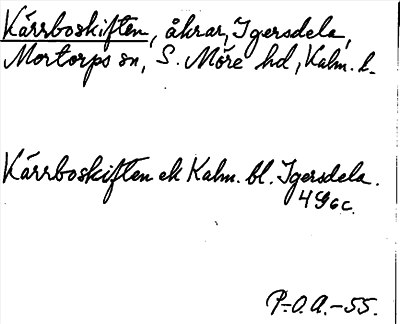 Kärrboskiften, åkrar, Igersdela,
Mortorps sn, S. Möre hd, Kalm. l.
Kärrboskiften ek Kalm. bl. Igersdela.
4 G 6 c.
P.-O.A.-55.